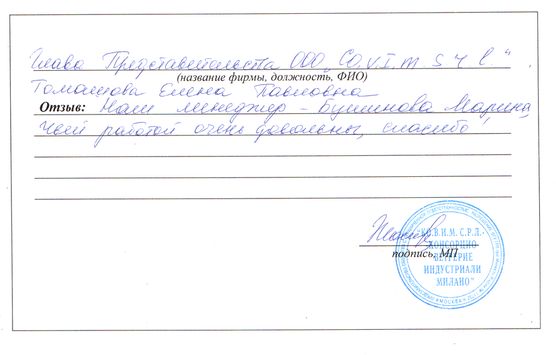 Глава Представительства ООО „CO.V.I.M S ч l."
(название фирмы, должность, ФИО)
Томашова Елена Павловна
Отзыв: Наш менеджер - Бушинова Марина,
Чьей работой очень довольны, спасибо!
подпись, МП
"КО.В.И.М. С.Р.Л.-
КОНСОРЦИО
ВЕТРЕРИЕ
ИНДУСТРИАЛИ
МИЛАНО"